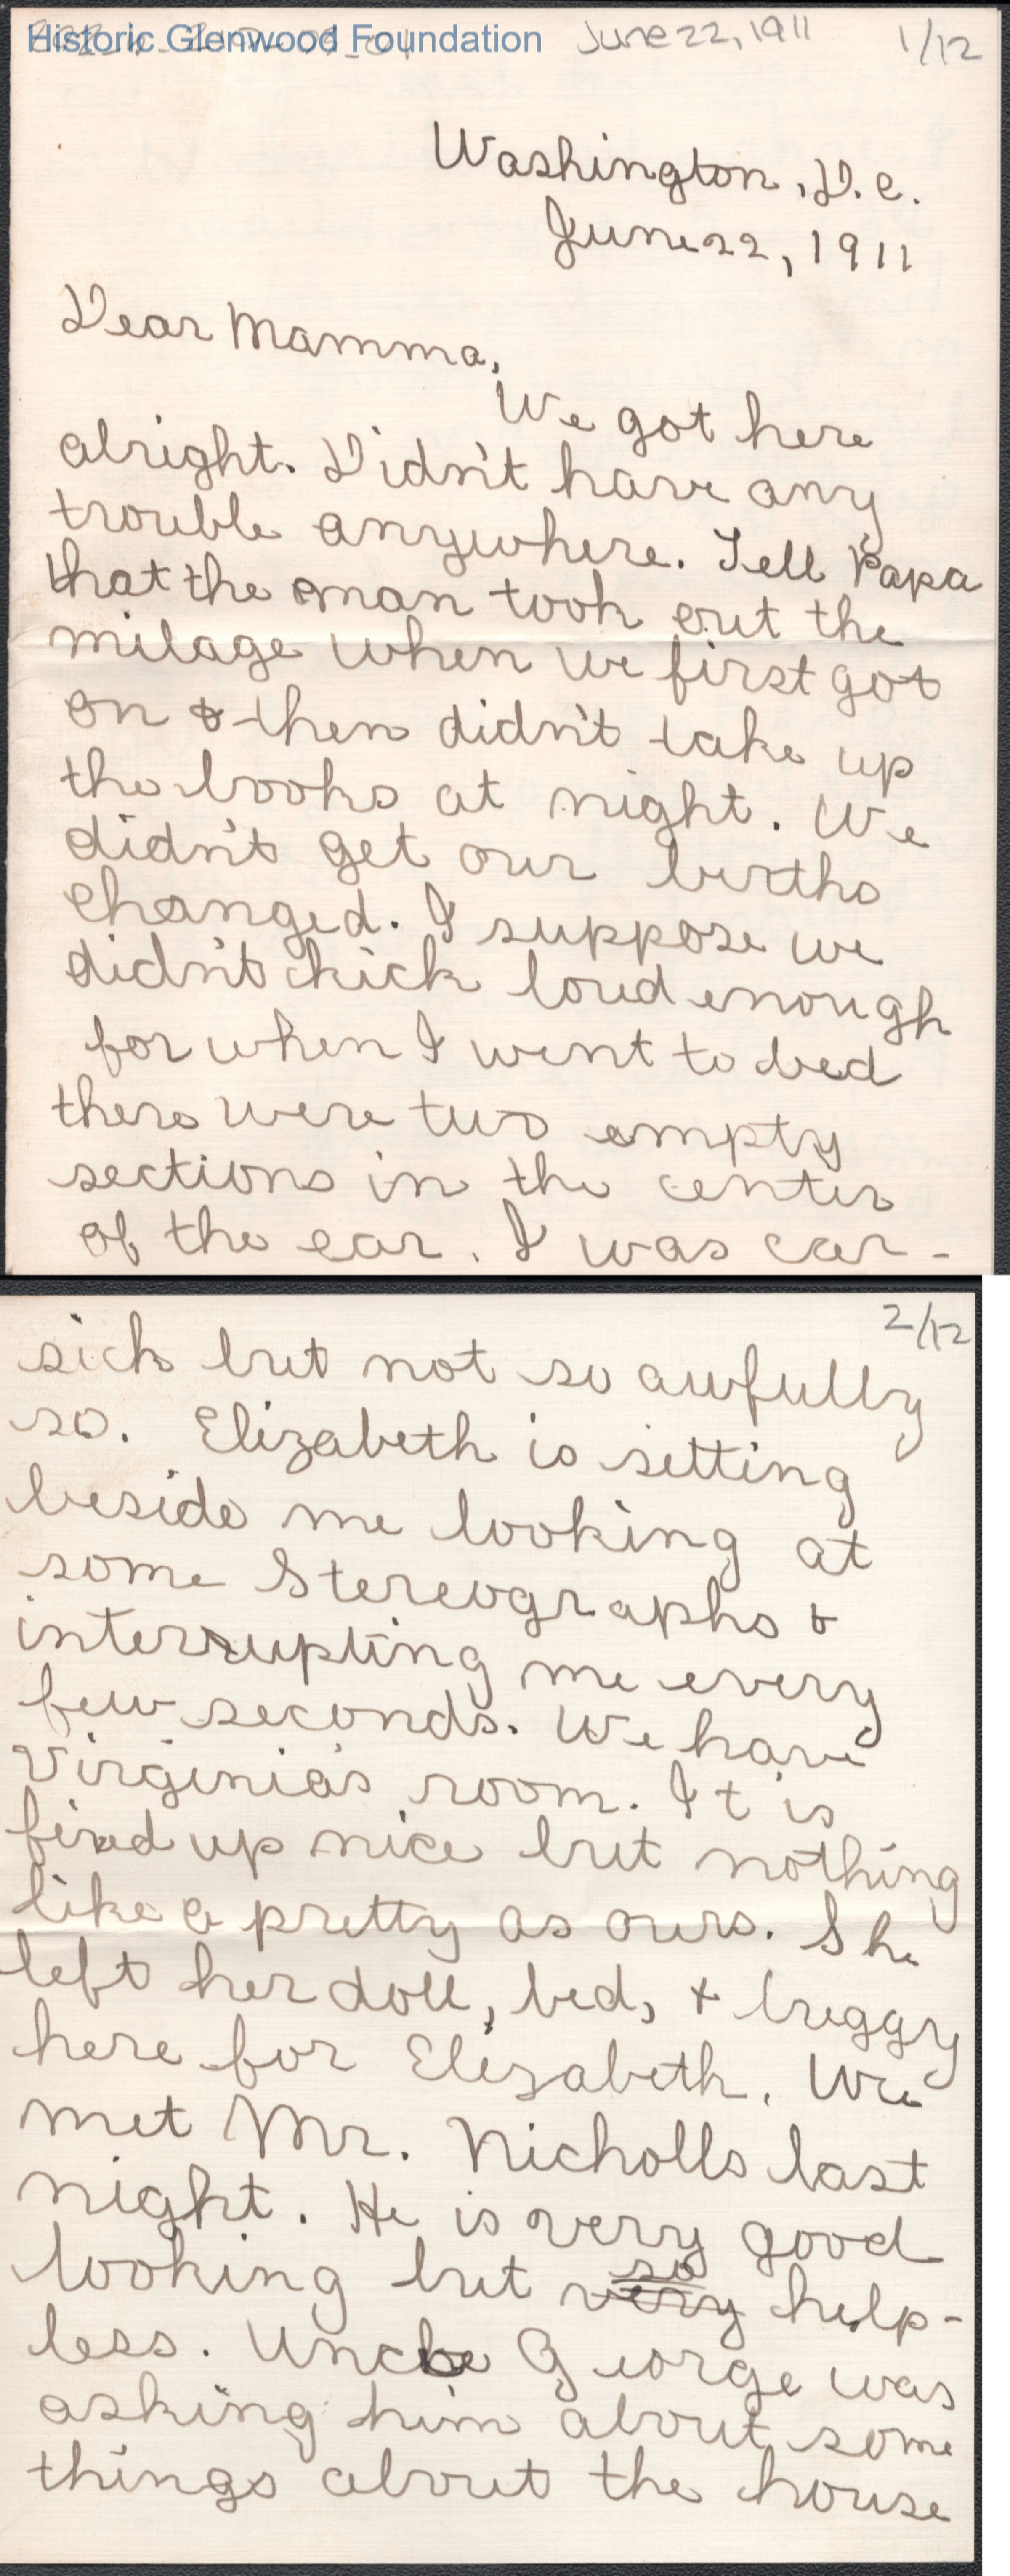 Historic Glenwood Foundation
June 22, 1911
1/12
Washington, D.C.
June 22, 1911
Dear Mamma,
We got here
alright. Didn't have any
trouble anywhere. Tell Papa
that the man took out the
milage when we first got
on & then didn't take up
the books at night. We
didn't get our berths
changed. I suppose we
didn't kick loud enough
for when I went to bed
there were two empty
sections in the center
of the car. I was car-
2/12
sick but not so awfully
so. Elizabeth is setting
beside me looking at
some Stereographs &
interrupting me every
few seconds. We have
Virginia's room. It is
fixed up nice but nothing
like a pretty as ours. She
left her doll, bed, & buggy
here for Elizabeth. We
met Mr. Nicholls last
night. He is very good
so
looking but very help-
less. Uncle George was
asking him about some
things about the house